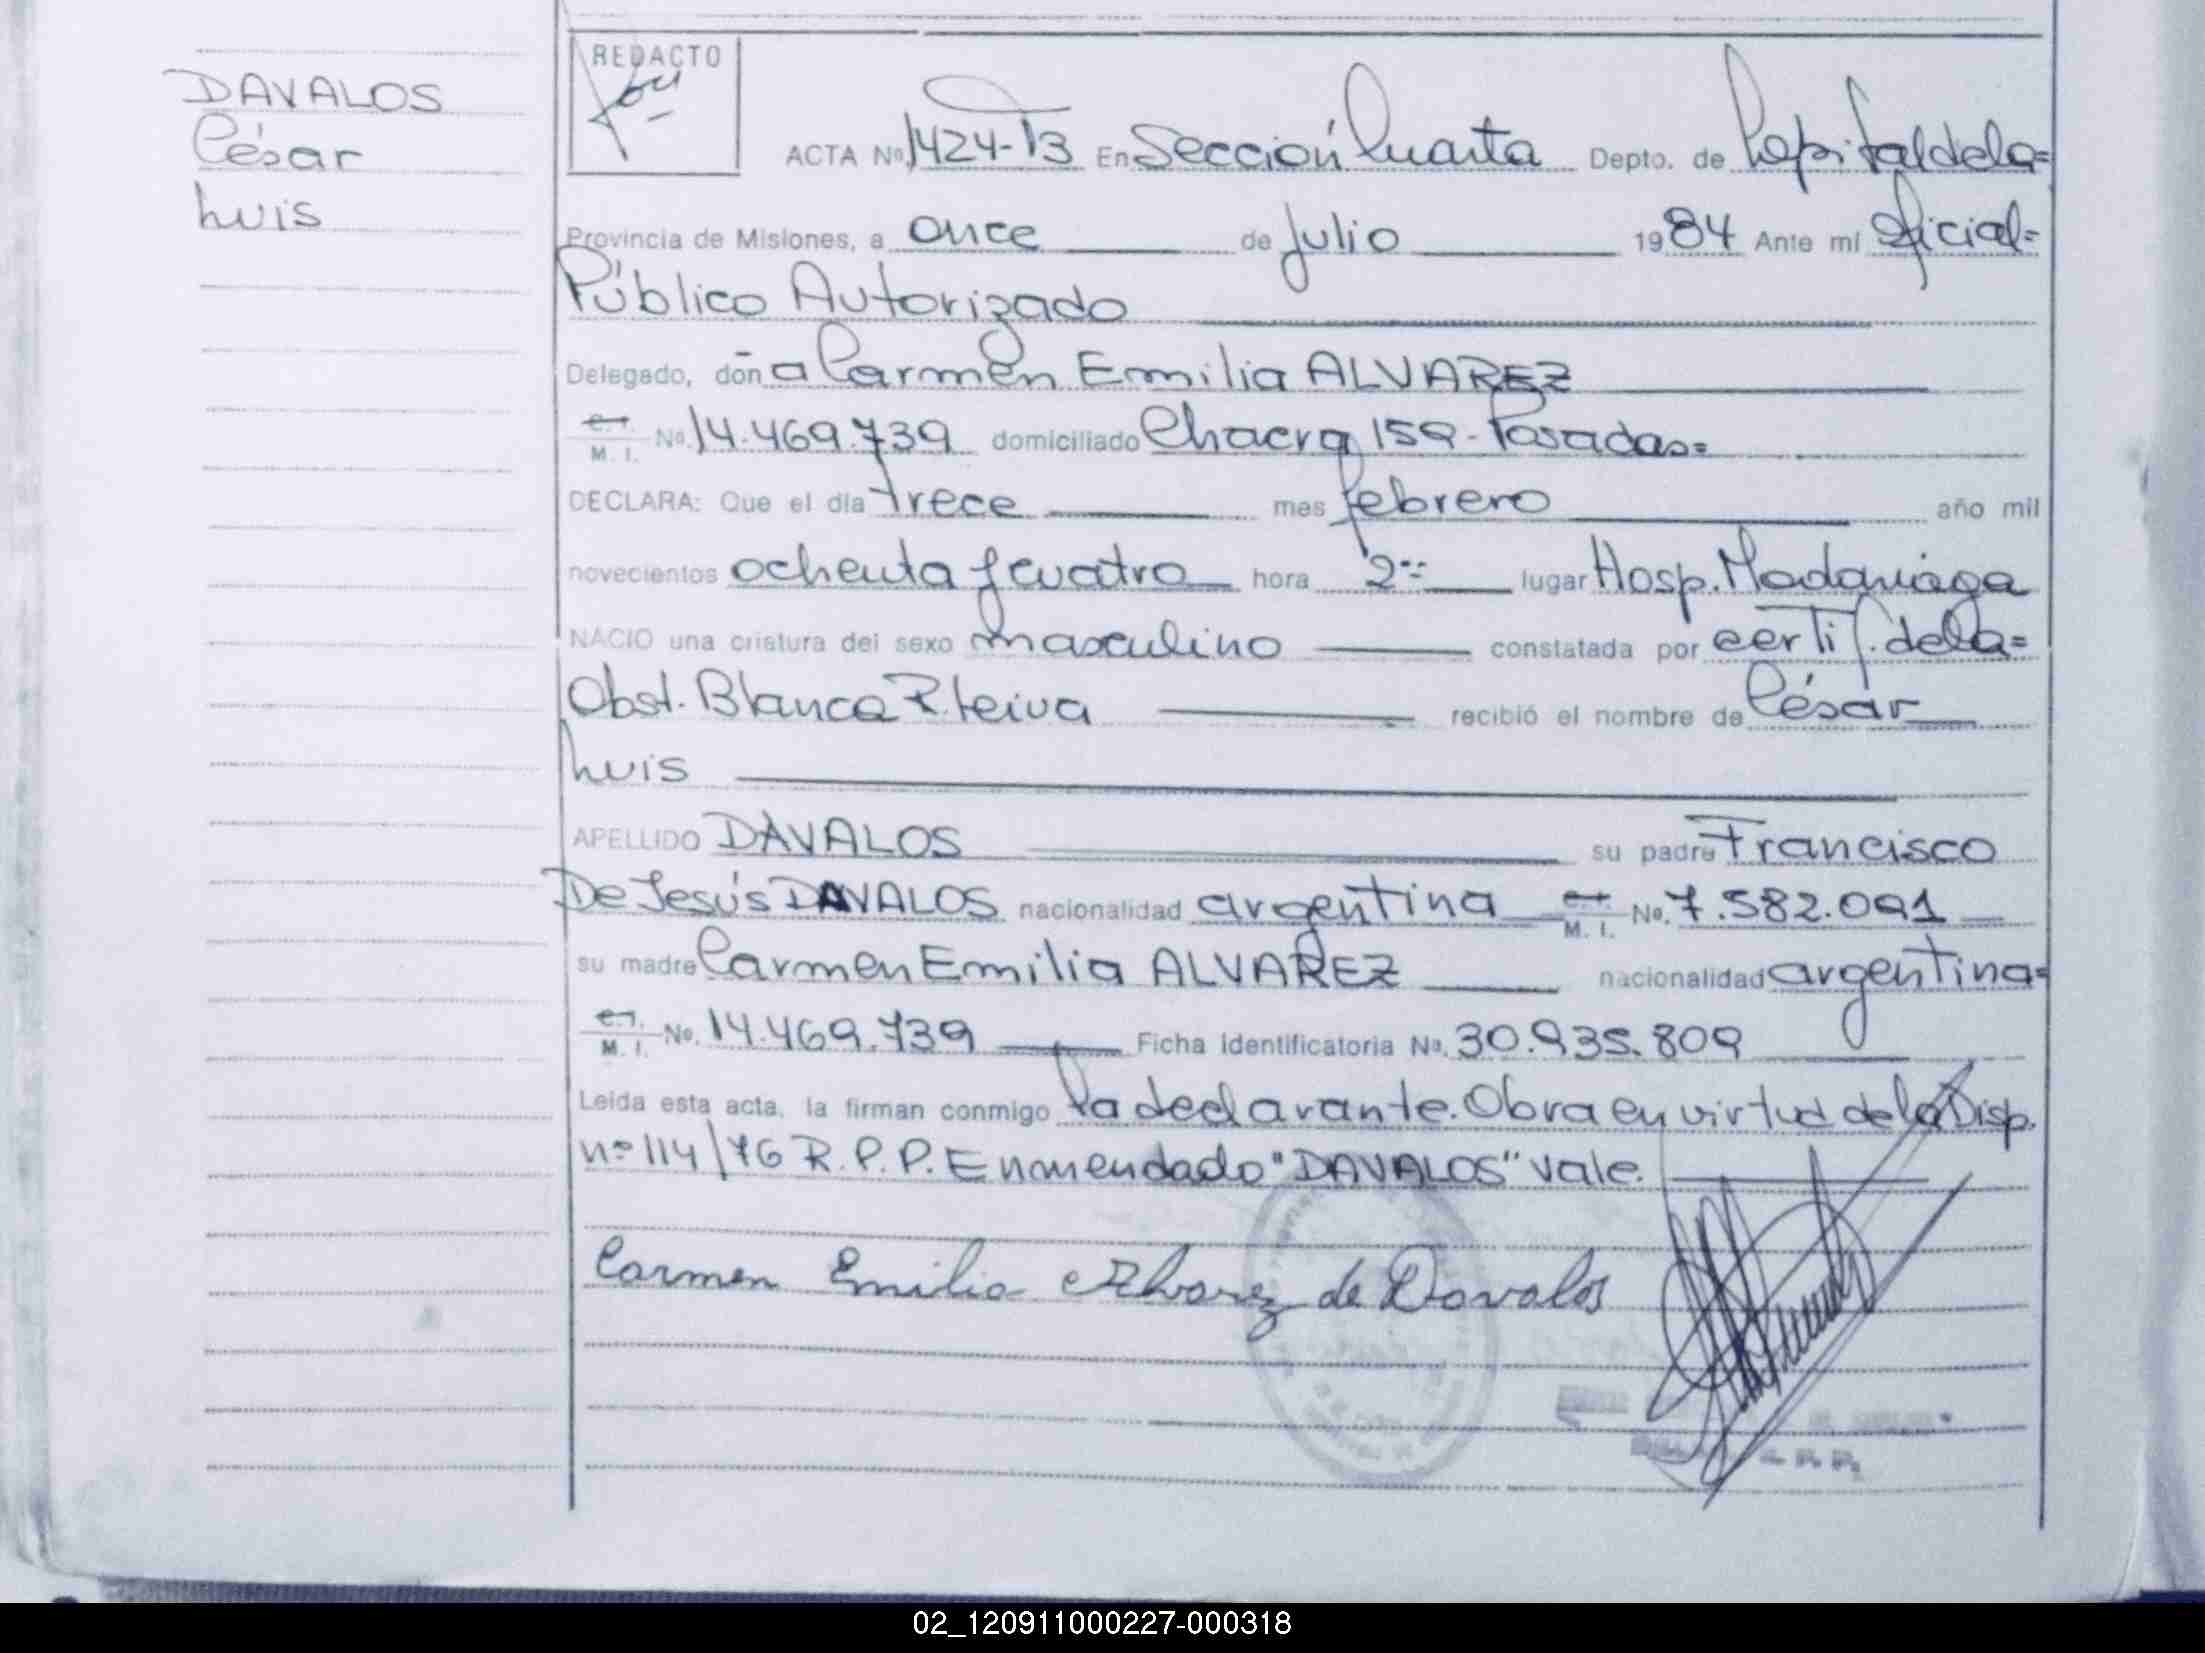 DAVALOS
César
Luis
REDACTO
ACTA No. 1424-T3 En Sección Cuarta Depto. de Capital de la=
Provincia de Misiones, a once de Julio 1984 Ante mí Oficial=
Público Autorizado
Delegado, doña Carmen Emilia ALVAREZ
C.I. M. I. No. 14.469.739 domiciliado Chacra 159-Posadas=
DECLARA: Que el día trece mes febrero año mil
novecientos ochenta y cuatro hora 2 lugar Hosp. Madariaga
NACIO una criatura del sexo masculino constatada por certif. de la=
Obst. Blanca R. Leiva recibió el nombre de César
Luis
APELLIDO DAVALOS su padre Francisco
De Jesús DAVALOS nacionalidad argentina C.I. M. I. No. 7.582.091
su madre Carmen Emilia ALVAREZ nacionalidad argentina=
C.I. M. I. No. 14.469.739 Ficha Identificatoria No. 30.935.809
Leida esta acta, la firman conmigo la declarante. Obra en virtud de la Disp.
nº 114/76 R.P.P. Enmendado "DAVALOS" vale.
Carmen Emilia Alvarez de Davalos
R. P. P.
02_120911000227-000318